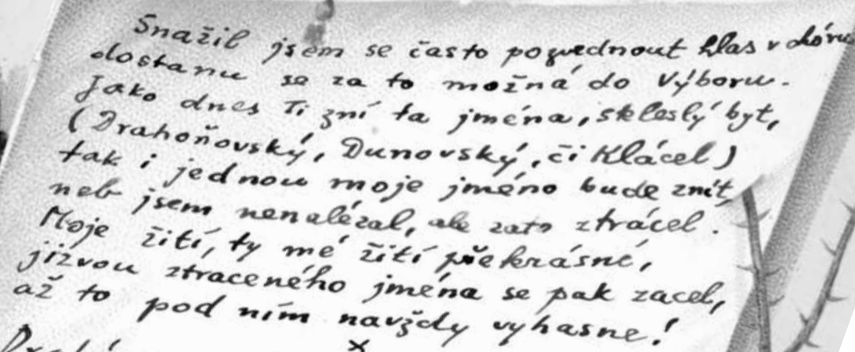 Snažil jsem se často pozvednout hlas v chóru
dostanu se za to možná do Výboru.
Jako dnes Ti zní ta jména, skleslý byt,
(Drahoňovský, Dunovský, či Klácel)
tak i jednou moje jméno bude znít,
neb jsem nenalézal, ale zato ztrácel.
Moje žití, ty mé žití překrásné,
jizvou ztraceného jména se pak zacel,
až to pod ním navždy vyhasne!